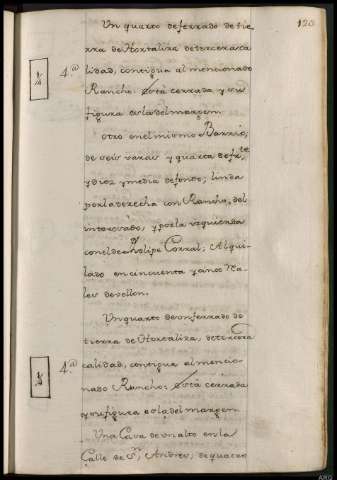 120
Un quarto de ferrado de tie
rra de Hortaliza de tercera ca
4.ª
lidad, contigua al mencionado
Rancho: Está cerrada, y su
figura es la del margen.
Otro en el mismo Barrio,
de seis varas y quarta de fr.te
y diez y media de fondo; linda
por la derecha con Rancho, del
interesado, y por la izquierda
con el de Phelipe Corral; Alqui-
lado en cincuenta y cinco Rea
les de vellon.
Un quarto de un ferrado de
tierra de Hortaliza, de tercera
4.ª
calidad, contigua al mencio
nado Rancho: Está cerrada
y su figura es la del margen
Una Casa de un alto en la
Calle de S.n Andres, de quatro